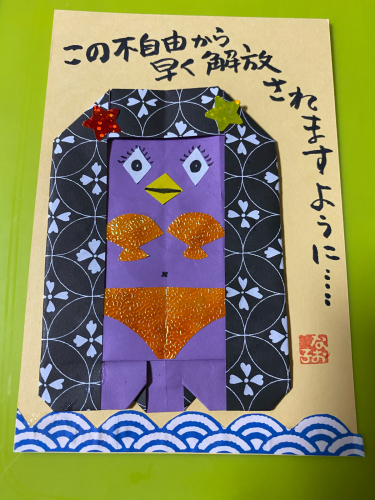 この不自由から
早く解放
されますように....
なお